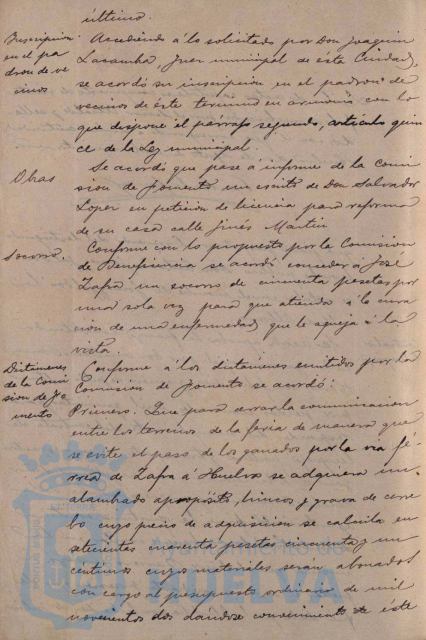 último.
Inscripcion
en el pa
dron de ve
cinos
Accediendo á lo solicitado por Don Joaquin
Lacanha, Juez municipal de esta Ciudad,
se acordó su inscripcion en el padron de
vecinos de éste termino en armonia con lo
que dispone el párrafo segundo, articulo quin
ce de la Ley municipal.
Obras
Se acordó que pase á informe de la Comi
sion de fomento un escrito de Don Salvador
Lopez en peticion de licencia para reforma
de su casa calle Ginés Martin
Socorro.
Conforme con lo propuesto por la Comision
de Beneficencia se acordó conceder á José
Zafra un socorro de cincuenta pesetas por
una sola vez para que atienda á la cura
cion de una enfermedad que le aqueja á la
vista.
Dictámenes
de la Comi
sion de Fo
mento
Conforme á los dictámenes emitidos por la
Comision de Fomento se acordó:
Primero. Que para cerrar la comunicacion
entre los terrenos de la feria de manera que
se evite el paso de los ganados por la via fé
rrea de Zafra á Huelva se adquiera un
alambrado apropósito, hincos y grava de cer
bo cuyo precio de adquisicion se calcula en
setecientas cuarenta pesetas cincuenta y un
centimos cuyos materiales seran abonados
con cargo al presupuesto ordinario de mil
novecientos dos dandose conocimiento de éste
HUELVA